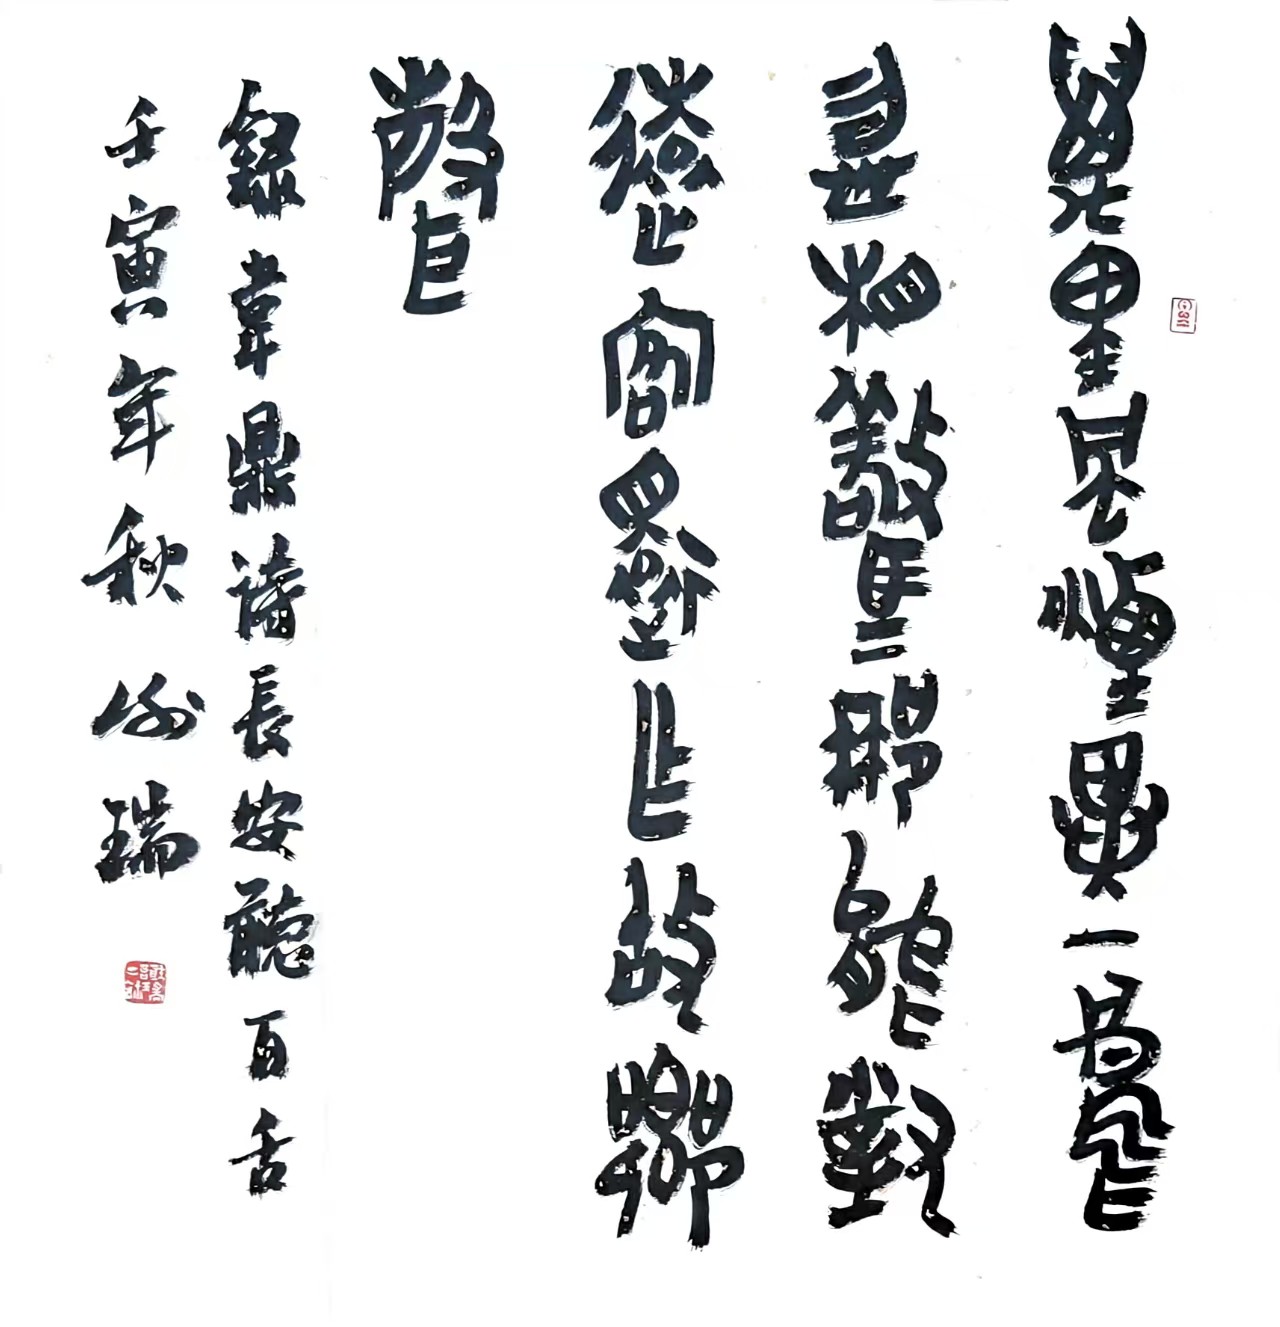 萬里風煙異一鳥
忽相驚那能對
遠客還作故鄉
聲
錄韋鼎詩長安聽百舌
壬寅年秋 瑞